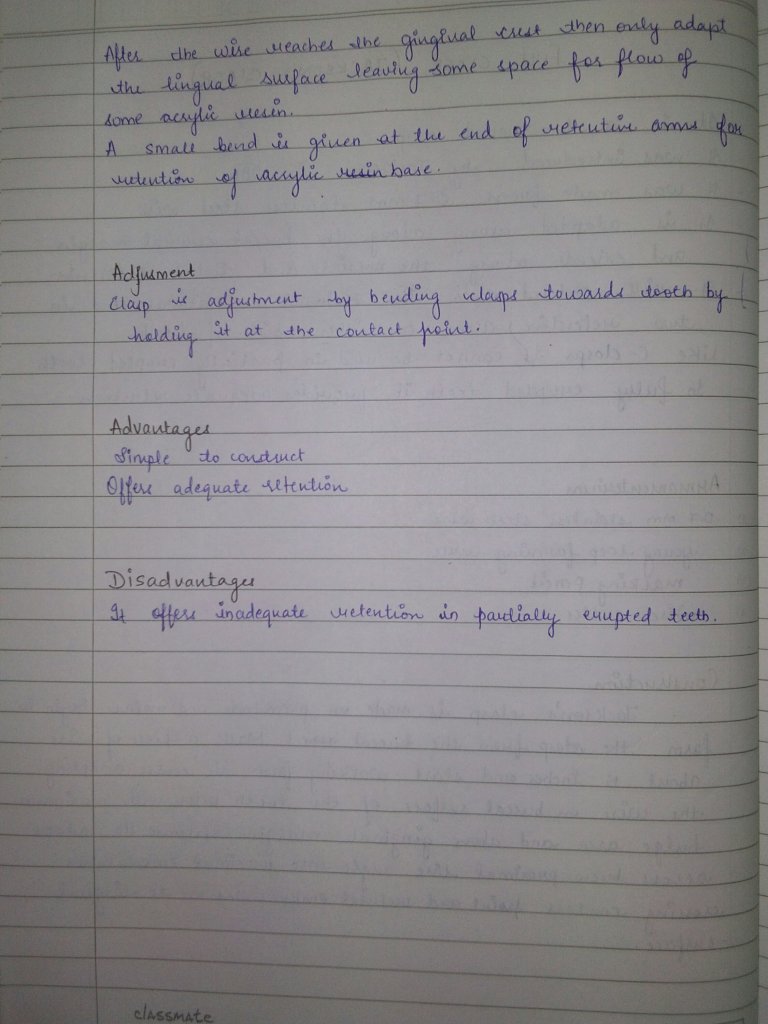 After the wire reaches the gingival crest then only adapt
the lingual surface leaving some space for flow of
some acrylic resin.
A small bend is given at the end of retentive arms for
retention of acrylic resin base.
Adjusment
Clasp is adjustment by bending clasps towards tooth by
holding it at the contact point.
Advantages
Simple to construct
Offers adequate retention
Disadvantages
It offers inadequate retention in partially erupted teeth.
classmate